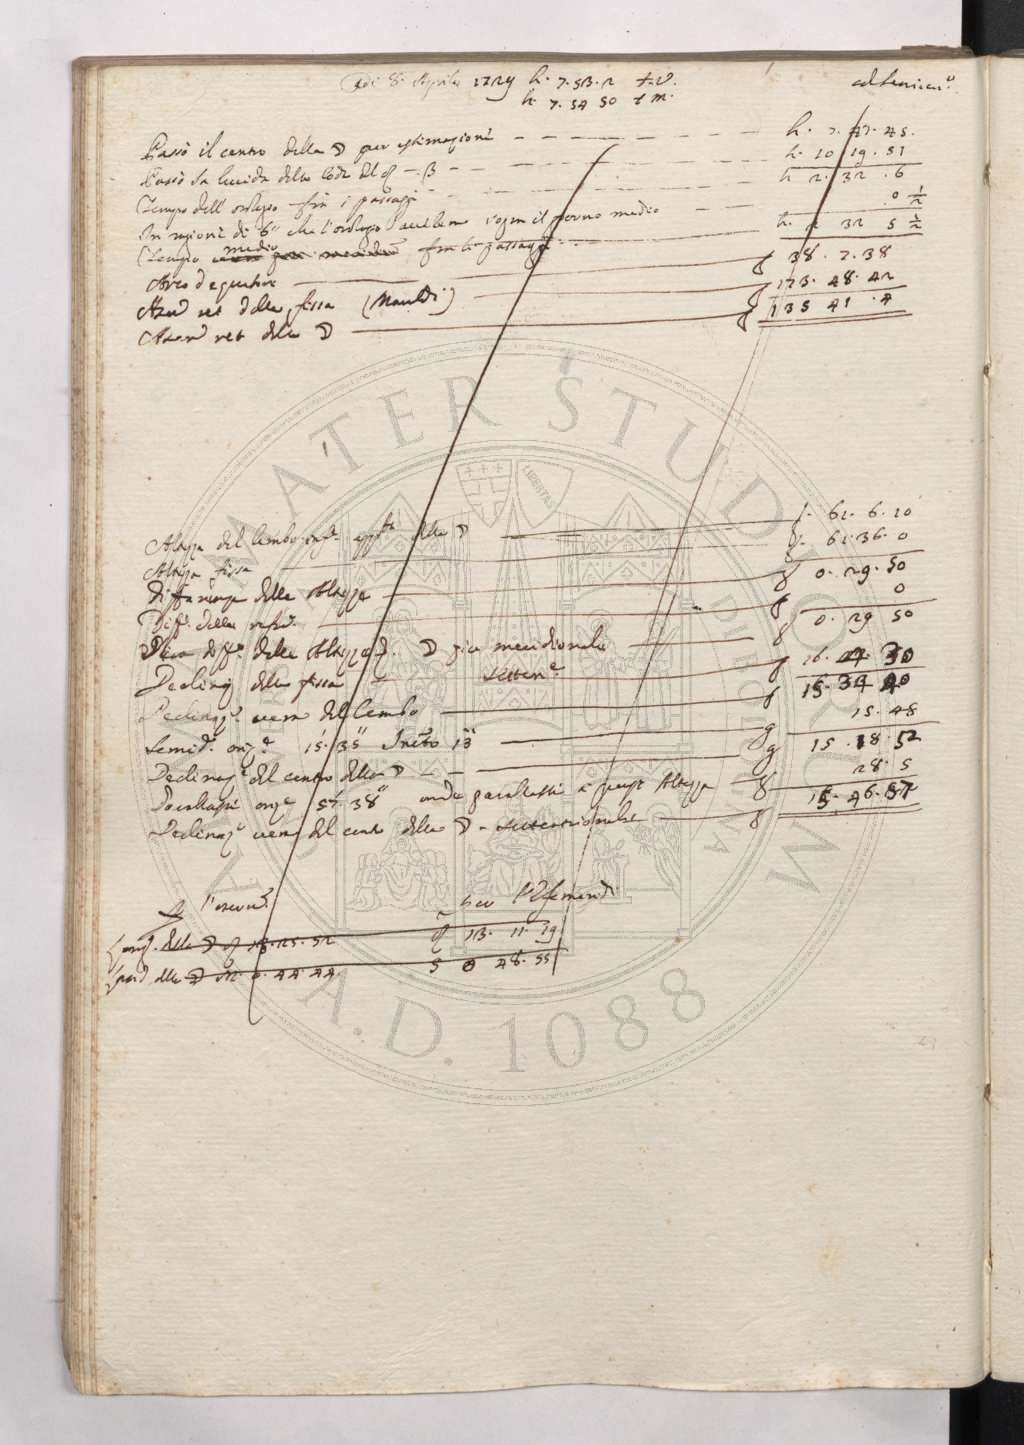 Adi 8. Aprile 1729 h. 7. 53. 2 t. v.
h. 7. 54 50 t m.
Passò il centro della ☽ per estimazione h. 7. 47. 45.
Passò la lucida della coda del ♌ β h. 10 19. 51
Tempo dell'orologio fra i passaggi h 2. 32. 6
In ragione di 6" che l'orologio accelera ogni il giorno medio 0 1/2
Tempo medio fra li passaggi h. 2 32 5 1/2
Arco d'equatore 38. 7. 38
Ascen ret della fissa (Manfredi) 173. 48. 42
Ascen ret della ☽ 135 41. 4
Altezza del lembo della ☽ 61. 6. 10
Altezza fissa 61. 36. 0
Differenza delle Altezze 0. 29. 50
Diff. delle refr. 0
diff. delle Altezze ☽ più meridionale 0. 29 50
Declinaz della fissa Setten.e 16. 4. 30
Declinaz.e vera del lembo 15. 34 40
Semid. oriz. 15'. 35" 13" 15. 48
Declinaz.e del centro della ☽ 15. 18. 52
Parallassi oriz.e 57'. 38" onde parallassi a quest'Altezza 28. 5
Declinaz.e vera del centro della ☽ settentrionale 15. 46. 57
Long. della ☽ ♌ 13. 25. 52 ♌ 13. 11. 19
della ☽ 0. 44. 44. S 0 48. 55
ALMA MATER STUDIORUM
UNIVERSITÀ DI BOLOGNA
A.D. 1088
LIBERTAS